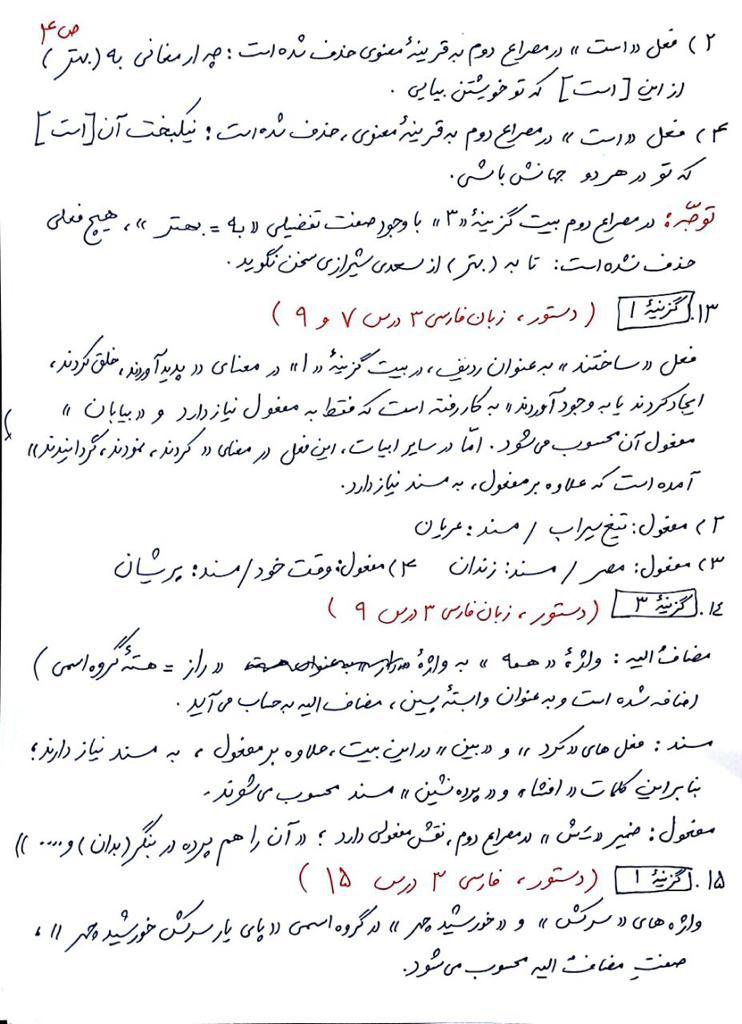 ص ۴
۲) فعل «است» در مصراع دوم به قرینهٔ معنوی حذف شده است: چه ارمغانی به (بهتر)
از این [است] که تو خویشتن بیایی.
۴) فعل «است» در مصراع دوم به قرینهٔ معنوی، حذف شده است: نیکبخت آن [است]
که تو در هر دو جهانش باشی.
توجّه: در مصراع دوم بیت گزینهٔ «۳» با وجودِ صفت تفضیلی «به = بهتر»، هیچ فعلی
حذف نشده است: تا به (بهتر) از سعدی شیرازی سخن نگوید.
۱۳. گزینهٔ ۱ (دستور، زبان فارسی ۳ درس ۷ و ۹)
فعل «ساختند» به عنوان ردیف، در بیت گزینهٔ «۱» در معنای «پدید آوردند، خلق کردند،
ایجاد کردند یا به وجود آوردند» به کار رفته است که فقط به مفعول نیاز دارد و «بیابان»
مفعول آن محسوب می‌شود. امّا در سایر ابیات، این فعل در معنای «کردند، نمودند، گردانیدند»
آمده است که علاوه بر مفعول، به مسند نیاز دارد.
۲) مفعول: تیغ سیراب / مسند: عریان
۳) مفعول: مصر / مسند: زندان ۴) مفعول: وقت خود / مسند: پریشان
۱۴. گزینهٔ ۳ (دستور، زبان فارسی ۳ درس ۹)
مضافٌ الیه: واژهٔ «همه» به واژهٔ «راز = هستهٔ گروه اسمی)
اضافه شده است و به عنوان وابستهٔ پسین، مضاف الیه به حساب می‌آید.
مسند: فعل های «کرد» و «بین» در این بیت، علاوه بر مفعول، به مسند نیاز دارند؛
بنابراین کلمات «افشا» و «پرده نشین» مسند محسوب می‌شوند.
مفعول: ضمیر «ـَش» در مصراع دوم، نقش مفعولی دارد؛ «آن را هم پرده در بنگر (بدان) و....»
۱۵. گزینهٔ ۱ (دستور، فارسی ۳ درس ۱۵)
واژه های «سرکش» و «خورشید چهر» در گروه اسمی «پای یار سرکش خورشید چهر»،
صفتِ مضافٌ الیه محسوب می‌شود.